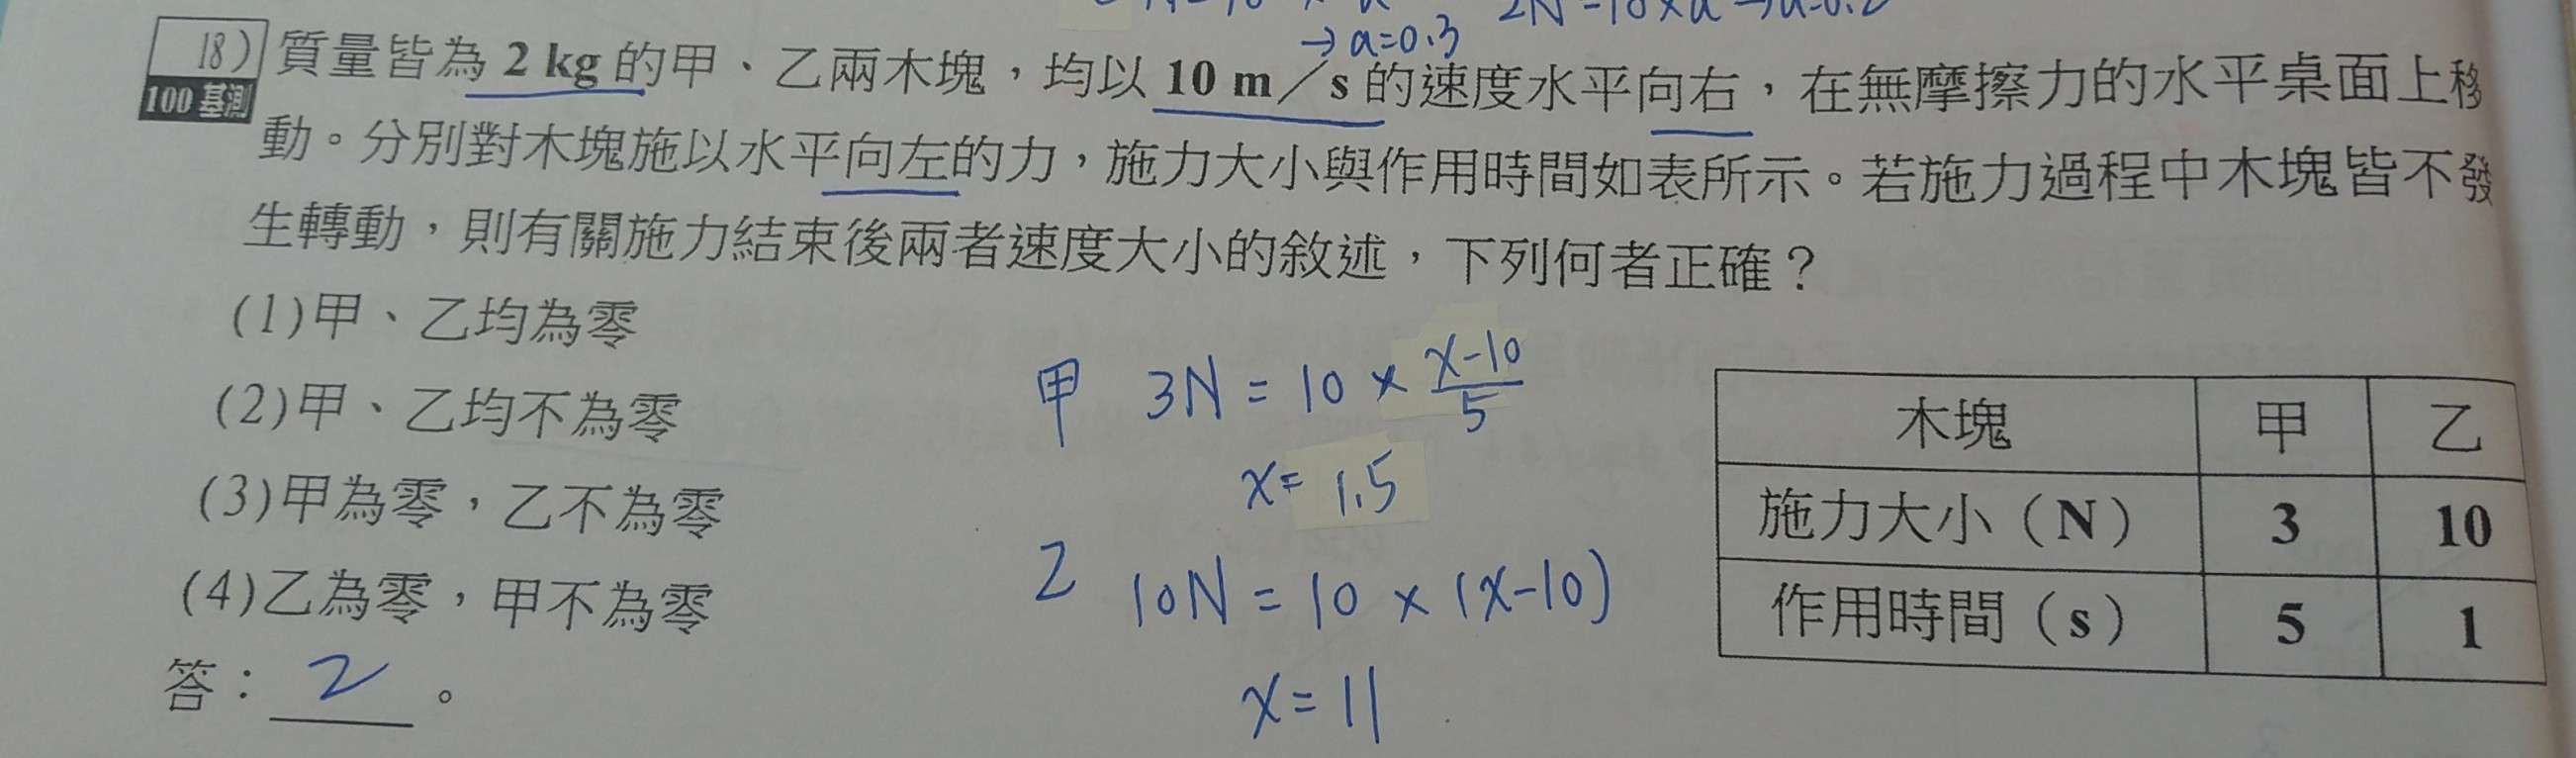 2N=10×a→a=0.2
→a=0.3
18)質量皆為 2 kg 的甲、乙兩木塊，均以 10 m／s 的速度水平向右，在無摩擦力的水平桌面上移
100 基測
動。分別對木塊施以水平向左的力，施力大小與作用時間如表所示。若施力過程中木塊皆不發
生轉動，則有關施力結束後兩者速度大小的敘述，下列何者正確？
(1)甲、乙均為零
(2)甲、乙均不為零
(3)甲為零，乙不為零
(4)乙為零，甲不為零
答：2。
甲 3N = 10 × (x-10)/5
x= 1.5
乙 10N = 10 × (x-10)
x= 11
木塊 甲 乙
施力大小（N） 3 10
作用時間（s） 5 1